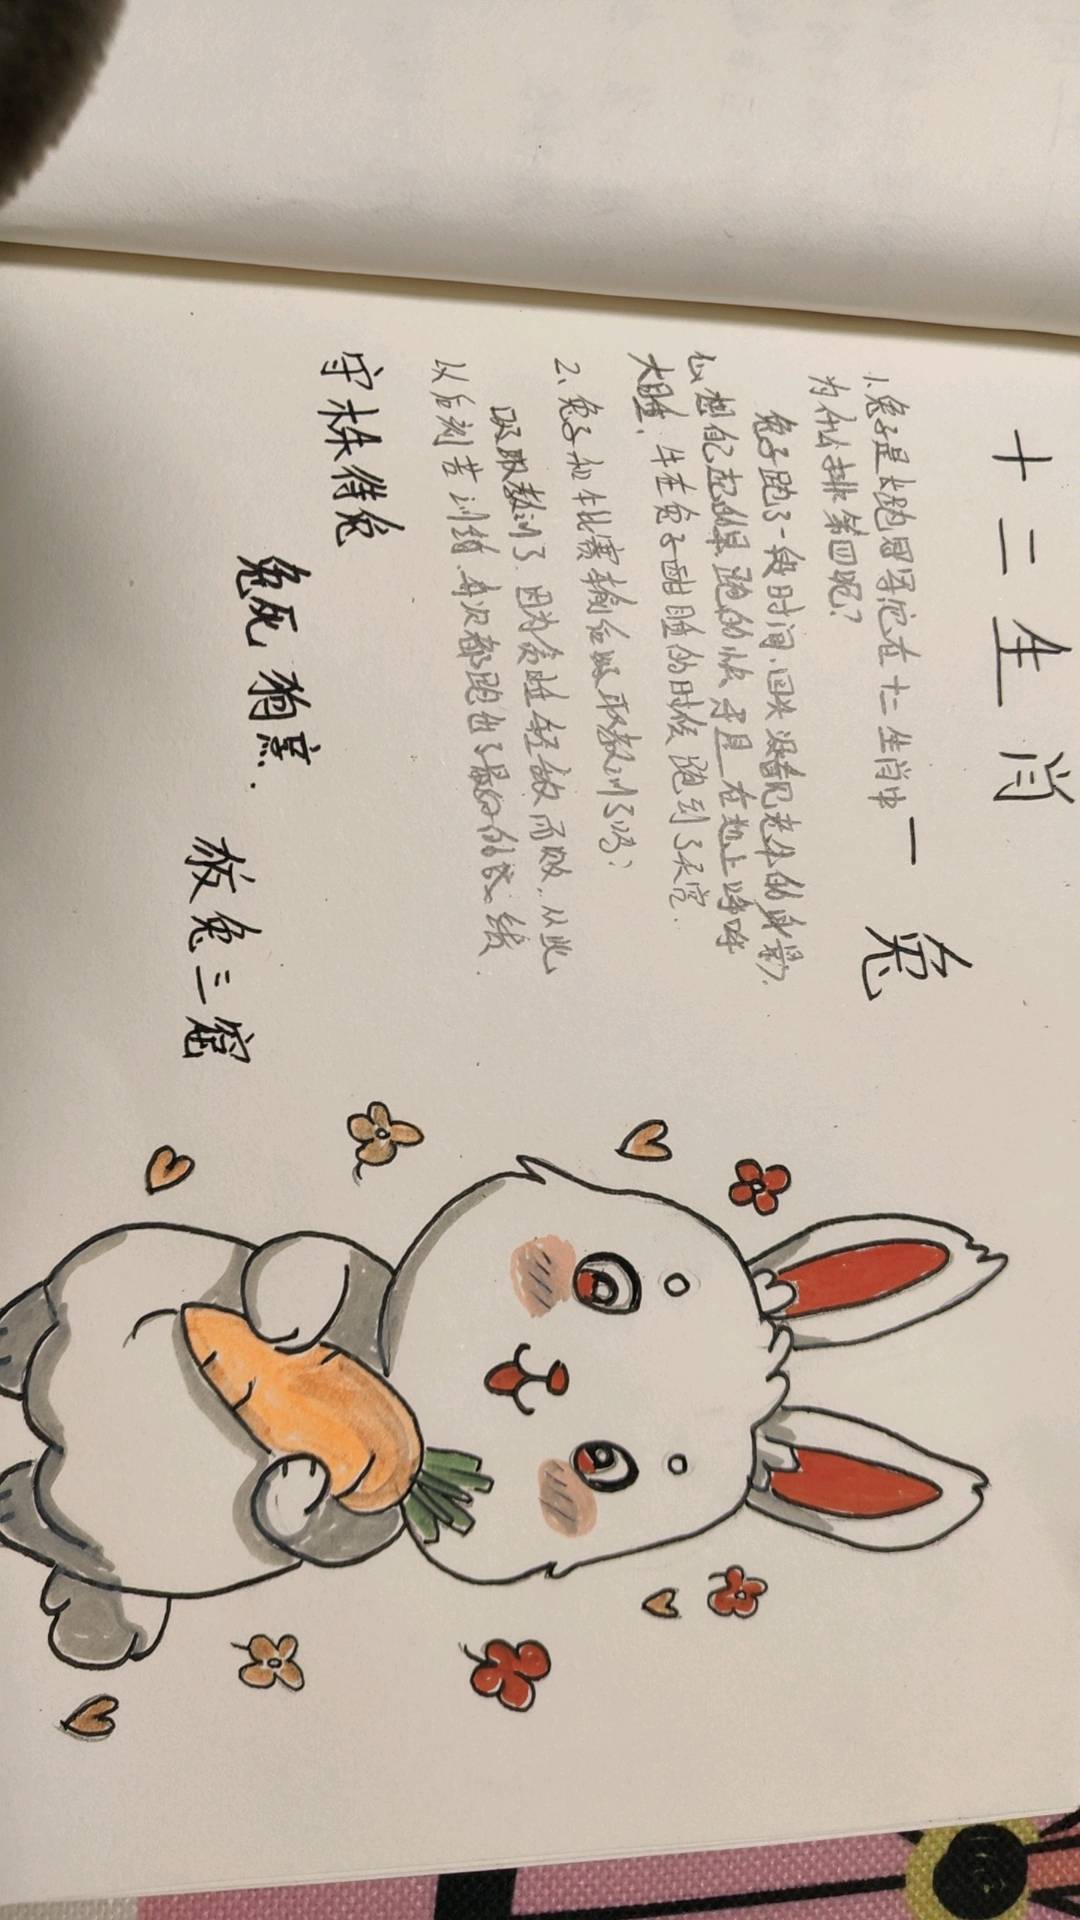 十二生肖
一兔
1、兔子是长跑冠军它在十二生肖中
为什么排第四呢?
兔子跑了一段时间、回头没看见老牛的身影.
心想自己起的早跑的快于是在地上呼呼
大睡,牛在兔子酣睡的时候跑到了天宫.
2、兔子和牛比赛输后吸取教训了吗?
吸取教训了.因为贪睡轻敌而败.从此
以后刻苦训练.每次都跑出了最好的成绩.
守株待兔
兔死狗烹.
狡兔三窟